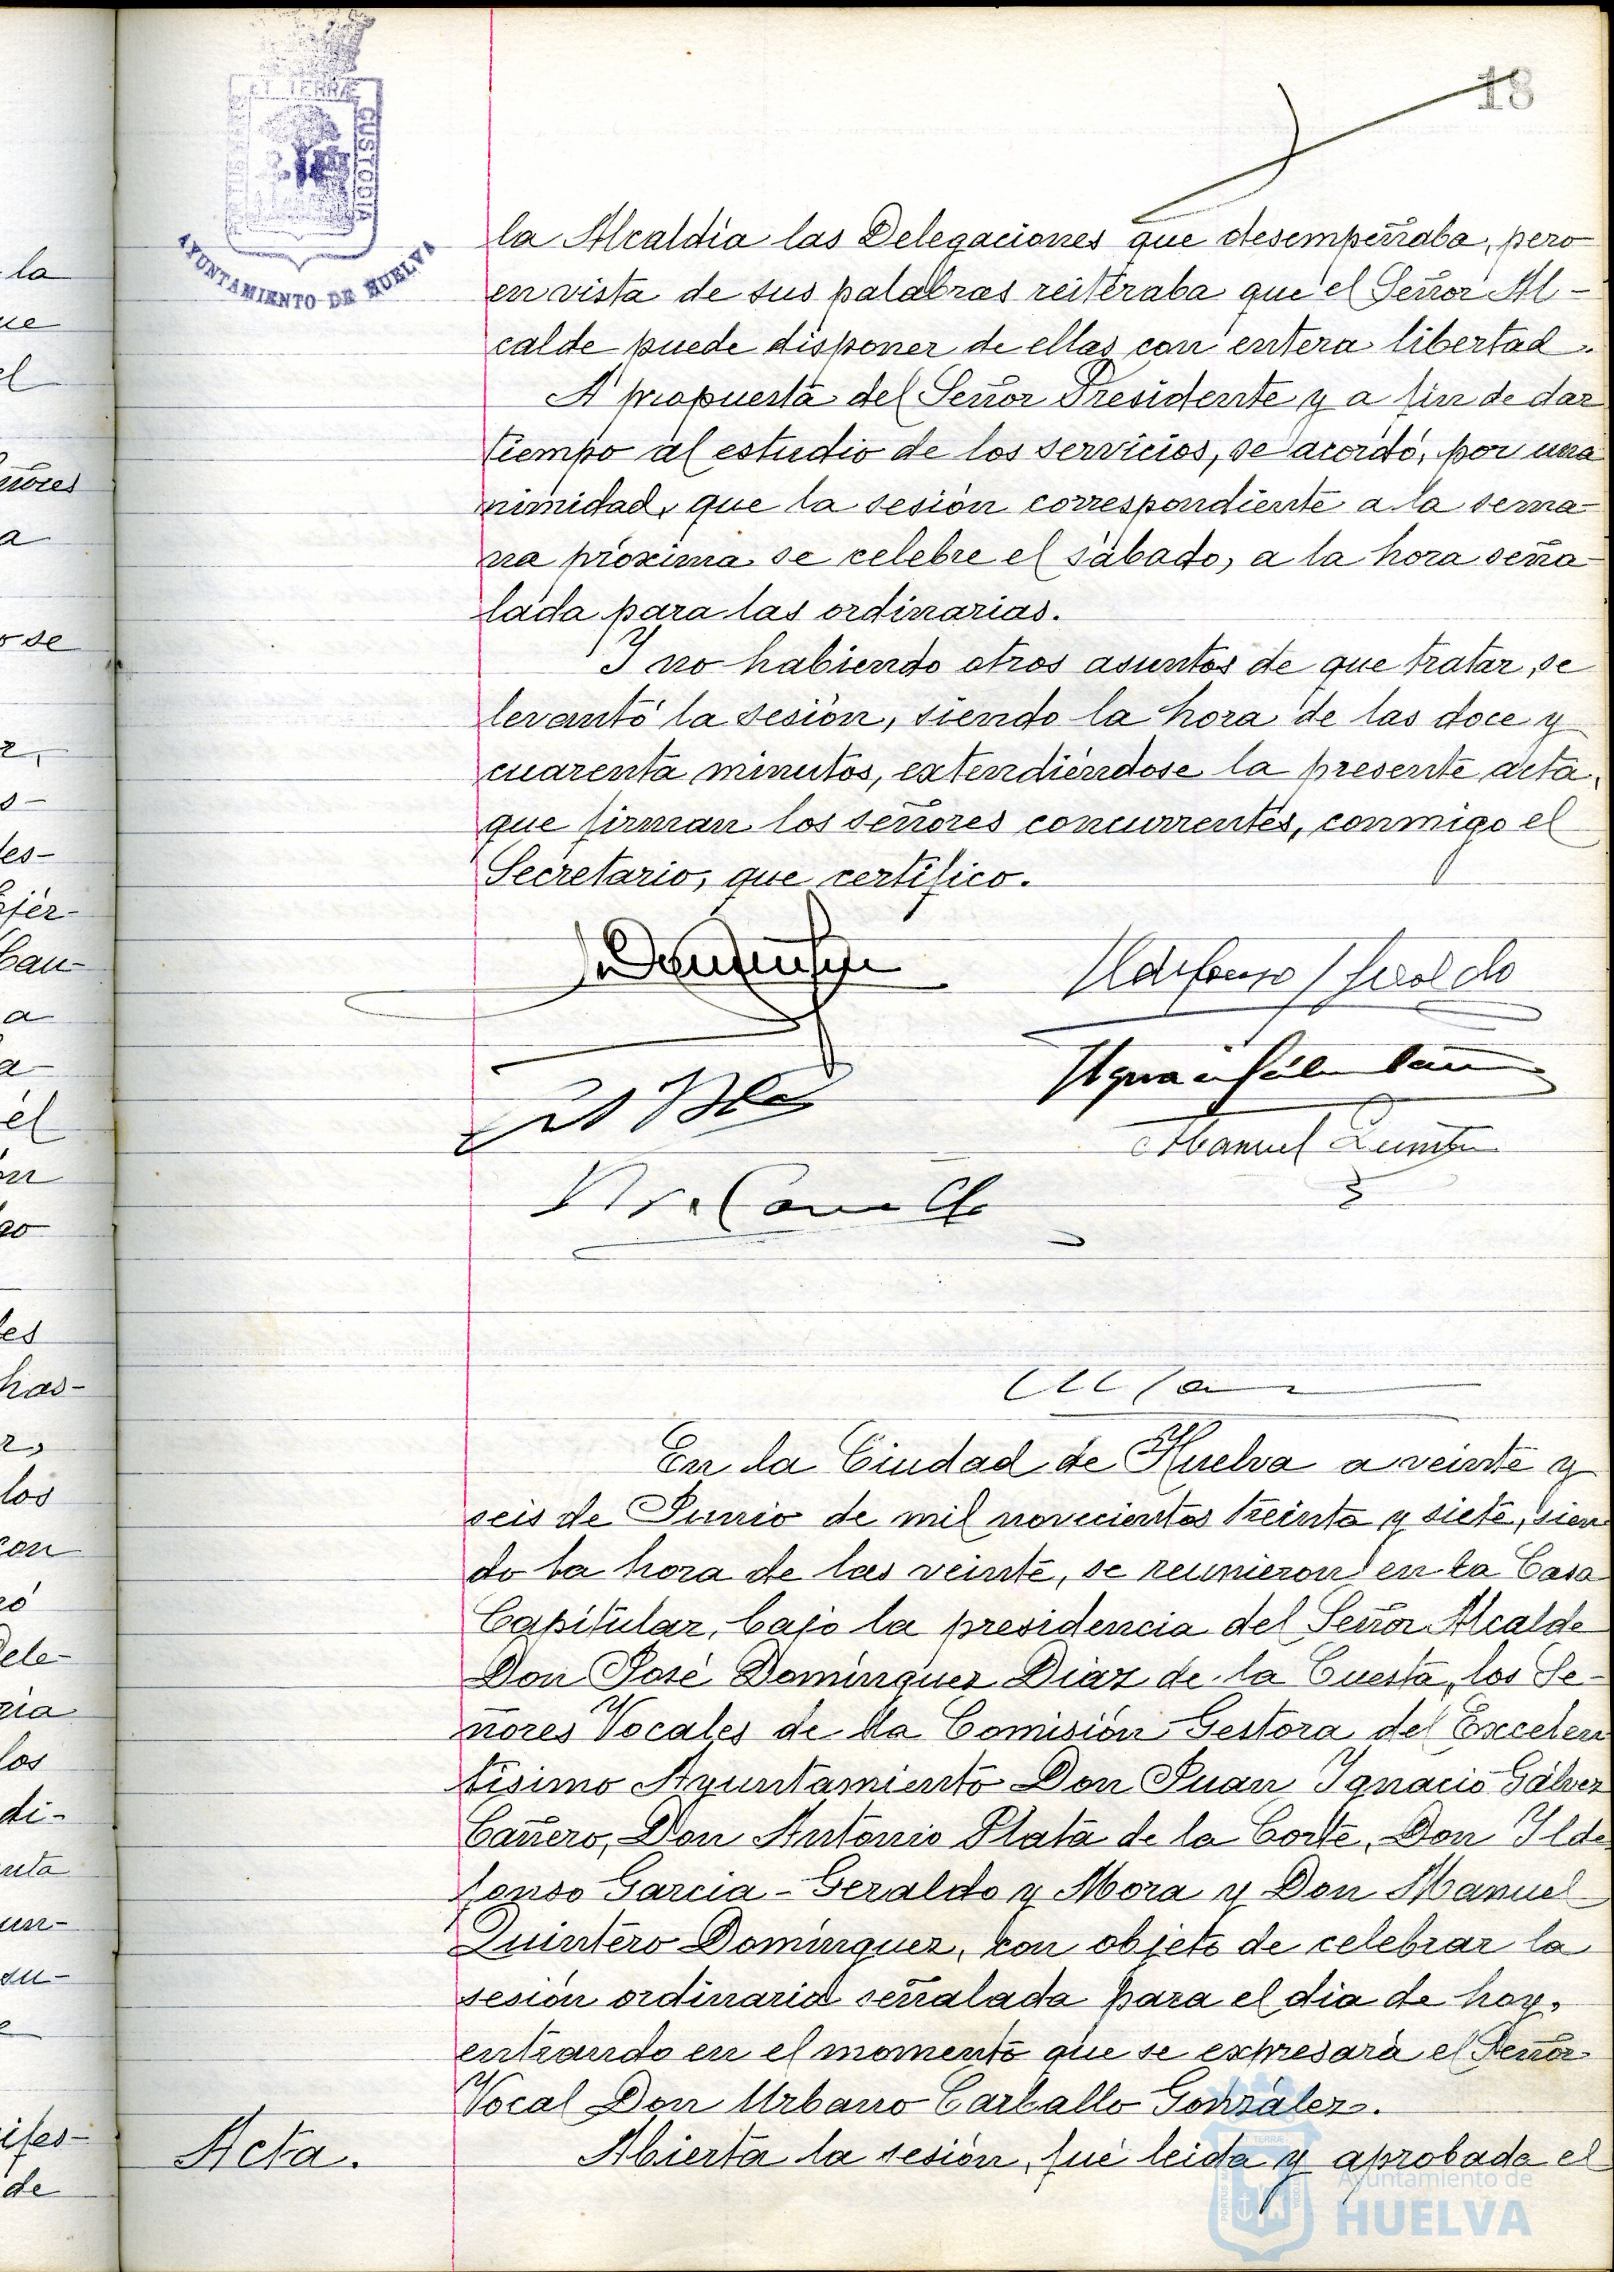 18
ET TERRÆ
CUSTODIA
AYUNTAMIENTO DE HUELVA
la Alcaldía las Delegaciones que desempeñaba, pero
en vista de sus palabras reiteraba que el Señor Al-
calde puede disponer de ellas con entera libertad.
A propuesta del Señor Presidente y a fin de dar
tiempo al estudio de los servicios, se acordó, por una
nimidad, que la sesión correspondiente a la sema-
na próxima se celebre el sábado, a la hora seña-
lada para las ordinarias.
Y no habiendo otros asuntos de que tratar, se
levantó la sesión, siendo la hora de las doce y
cuarenta minutos, extendiéndose la presente acta,
que firman los señores concurrentes, conmigo el
Secretario, que certifico.
Ildefonso Geraldo
Manuel Quintero
En la Ciudad de Huelva a veinte y
seis de Junio de mil novecientos treinta y siete, sien
do la hora de las veinte, se reunieron en la Casa
Capitular, bajo la presidencia del Señor Alcalde
Don José Domínguez Díaz de la Cuesta, los Se-
ñores Vocales de la Comisión Gestora del Excelen
tísimo Ayuntamiento Don Juan Ignacio Gálvez
Cañero, Don Antonio Plata de la Corte, Don Ilde
fonso García-Geraldo y Mora y Don Manuel
Quintero Domínguez, con objeto de celebrar la
sesión ordinaria señalada para el dia de hoy,
entrando en el momento que se expresará el Señor
Vocal Don Urbano Carballo González.
Acta.
Abierta la sesión, fué leida y aprobada el
Ayuntamiento de
HUELVA
la
el
ñores
a
o se
des-
Ejér-
a
él
go
has-
los
con
ó
Dele-
ria
los
di-
de